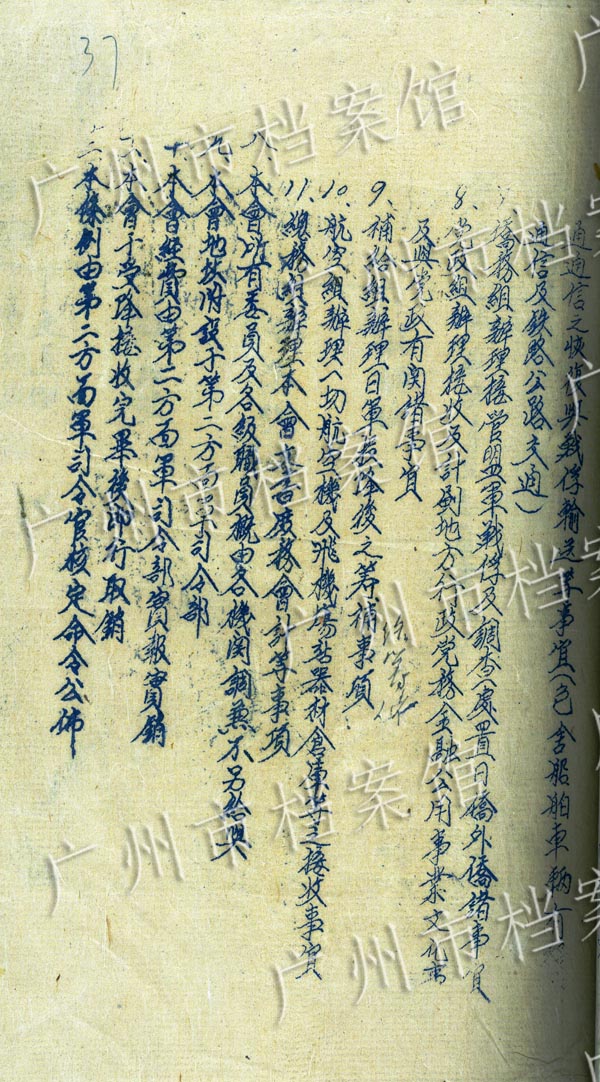 37
通通信之恢復與戰俘輸送等事宜（包含船舶車輛
通信及鉄路公路交通）
橋務組辦理接管盟軍戰俘及調查處置日僑外僑諸事宜
8、党政組辦理接收及計劃地方行政党務金融公用事業文化
及與党政有関諸事宜
9、補給組辦理日軍投降後之籌補事項
10、航空組辦理一切航空機及飛機場站器材倉庫等之接收事宜
11、總務處辦理本會庶務會計等事項
八、本會所有委員及各級職員概由各機関調兼不另給與
九、本會地址附設于第二方面軍司令部
十、本會經費由第二方面軍司令部實報實銷
一、本會于受降接收完畢後即行取銷
二、本條例由第二方面軍司令官核定命令公佈
广州市档案馆
广州市档案馆
广州市档案馆
广州市档案馆
广州市档案馆
广州市档案馆